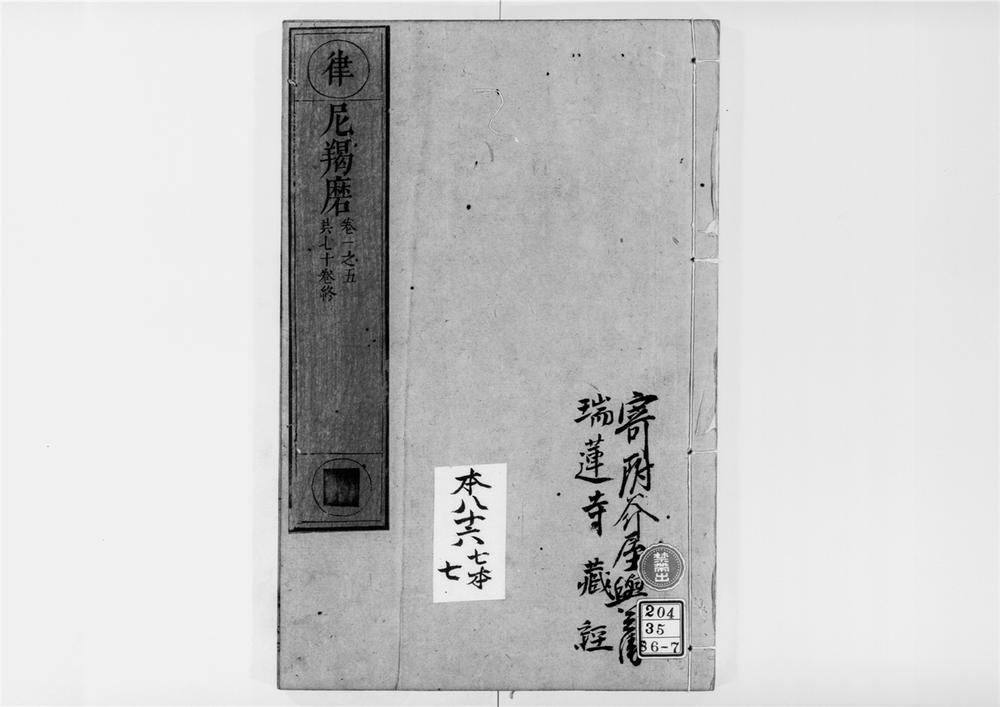 律
尼羯磨
卷一之五
共七十卷終
寄附芥屋與
瑞蓮寺藏經
禁帶出
204
35
86-7
本八十六
七本
七